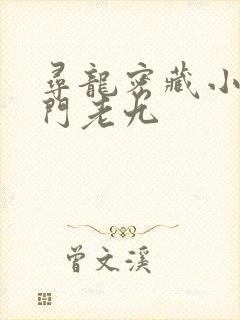 尋龍密藏小
門老九
曾文溪